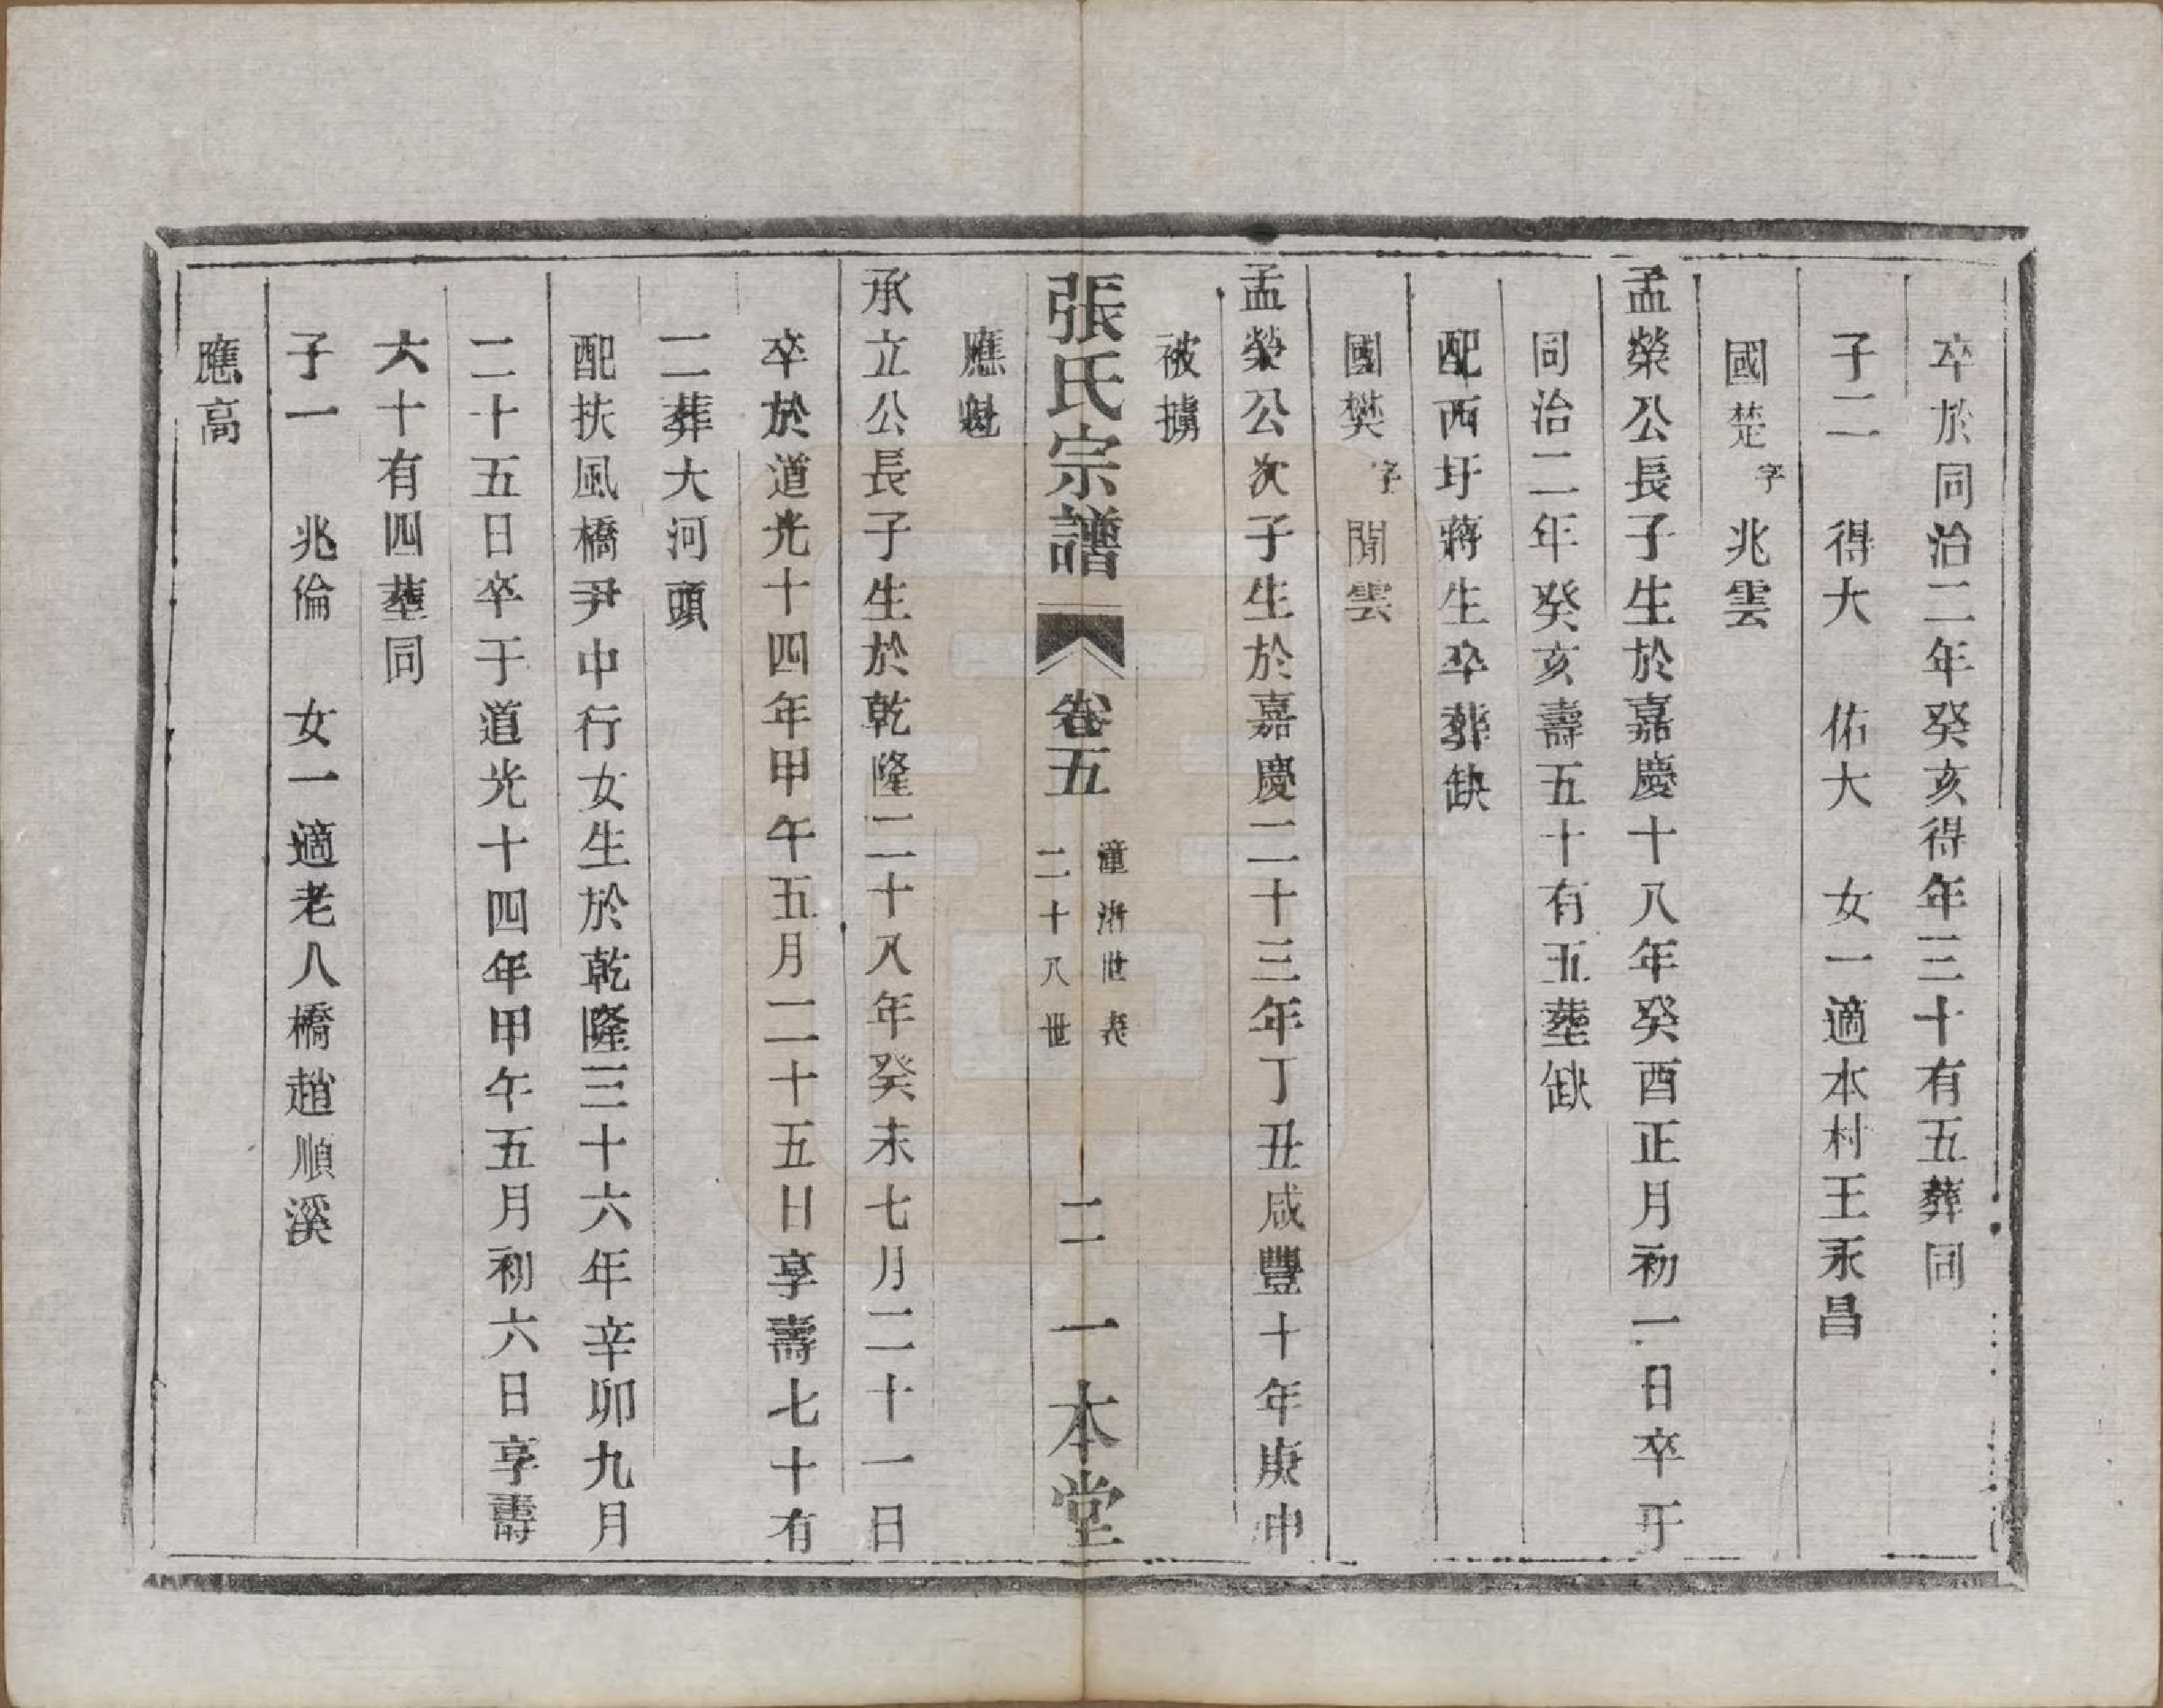 卒於同治二年癸亥得年三十有五葬同
子二　得大　佑大　女一適本村王永昌
國楚字兆雲
孟榮公長子生於嘉慶十八年癸酉正月初一日卒于
同治二年癸亥壽五十有五塟缺
配西圩蔣生卒葬缺
國樊字閒雲
孟榮公次子生於嘉慶二十三年丁丑咸豐十年庚申
被擄
張氏宗譜　卷五　潼　世表　二十八世　二　一本堂
應魁
承立公長子生於乾隆二十八年癸未七月二十一日
卒於道光十四年甲午五月二十五日享壽七十有
二葬大河頭
配扶風橋尹中行女生於乾隆三十六年辛卯九月
二十五日卒于道光十四年甲午五月初六日享壽
六十有四塟同
子一　兆倫　女一適老人橋趙順溪
應高